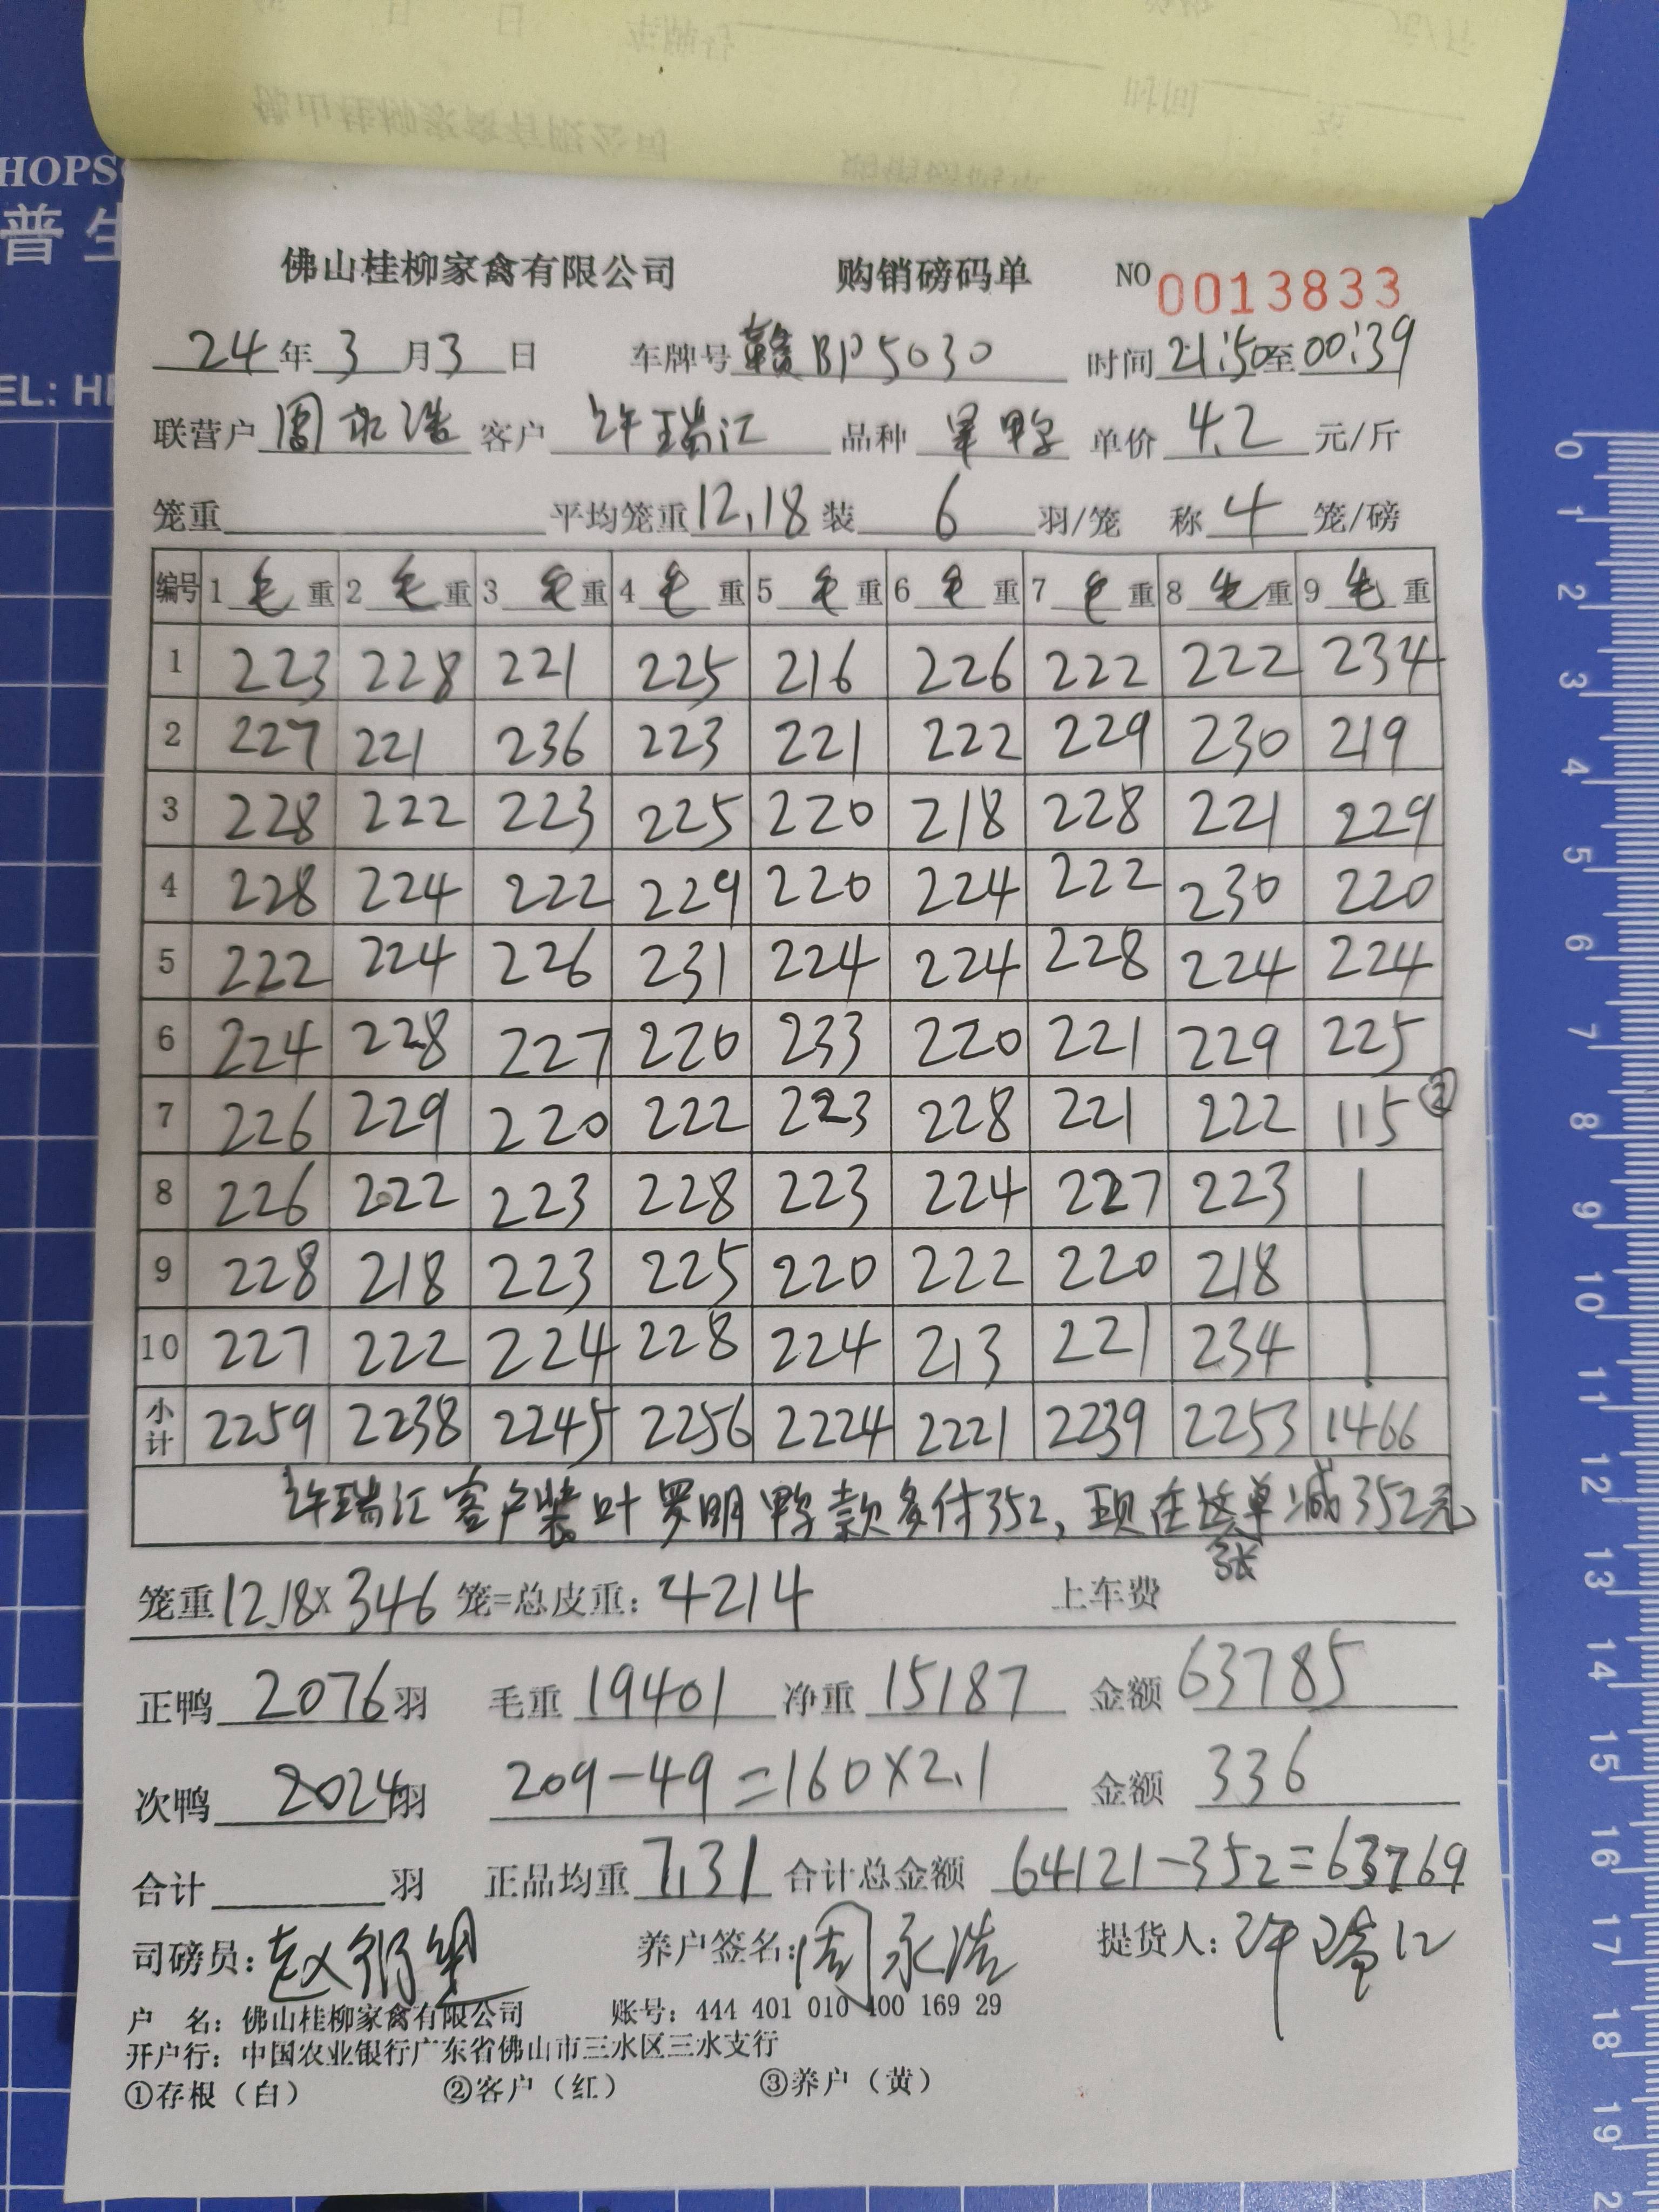 HOPS
普生
EL: H
佛山桂柳家禽有限公司 购销磅码单 NO 0013833
24年3月3日 车牌号 赣BP5030 时间 21:50至00:39
联营户 周永浩 客户 许瑞江 品种 单价 4.2 元/斤
笼重 平均笼重 12.18 装 6 羽/笼 称 4 笼/磅
编号 1毛重 2毛重 3毛重 4毛重 5毛重 6毛重 7毛重 8毛重 9毛重
1 223 228 221 225 216 226 222 222 234
2 227 221 236 223 221 222 229 230 219
3 228 222 223 225 220 218 228 221 229
4 228 224 222 229 220 224 222 230 220
5 222 224 226 231 224 224 228 224 224
6 224 228 227 220 233 220 221 229 225
7 226 229 220 222 223 228 221 222 115 ②
8 226 222 223 228 223 224 227 223
9 228 218 223 225 220 222 220 218
10 227 222 224 228 224 213 221 234
小计 2259 2238 2245 2256 2224 2221 2239 2253 1466
许瑞江客户装叶罗明鸭款多付352,现在这张单减352元
笼重12.18×346笼=总皮重:4214 上车费
正鸭 2076羽 毛重 19401 净重 15187 金额 63785
次鸭 24羽 209-49=160×2.1 金额 336
合计 羽 正品均重 7.31 合计总金额 64121-352=63769
司磅员: 养户签名:周永浩 提货人:许瑞江
户 名:佛山桂柳家禽有限公司 账号:444 401 010 400 169 29
开户行:中国农业银行广东省佛山市三水区三水支行
①存根(白) ②客户(红) ③养户(黄)
0 1 2 3 4 5 6 7 8 9 10 11 12 13 14 15 16 17 18 19 2